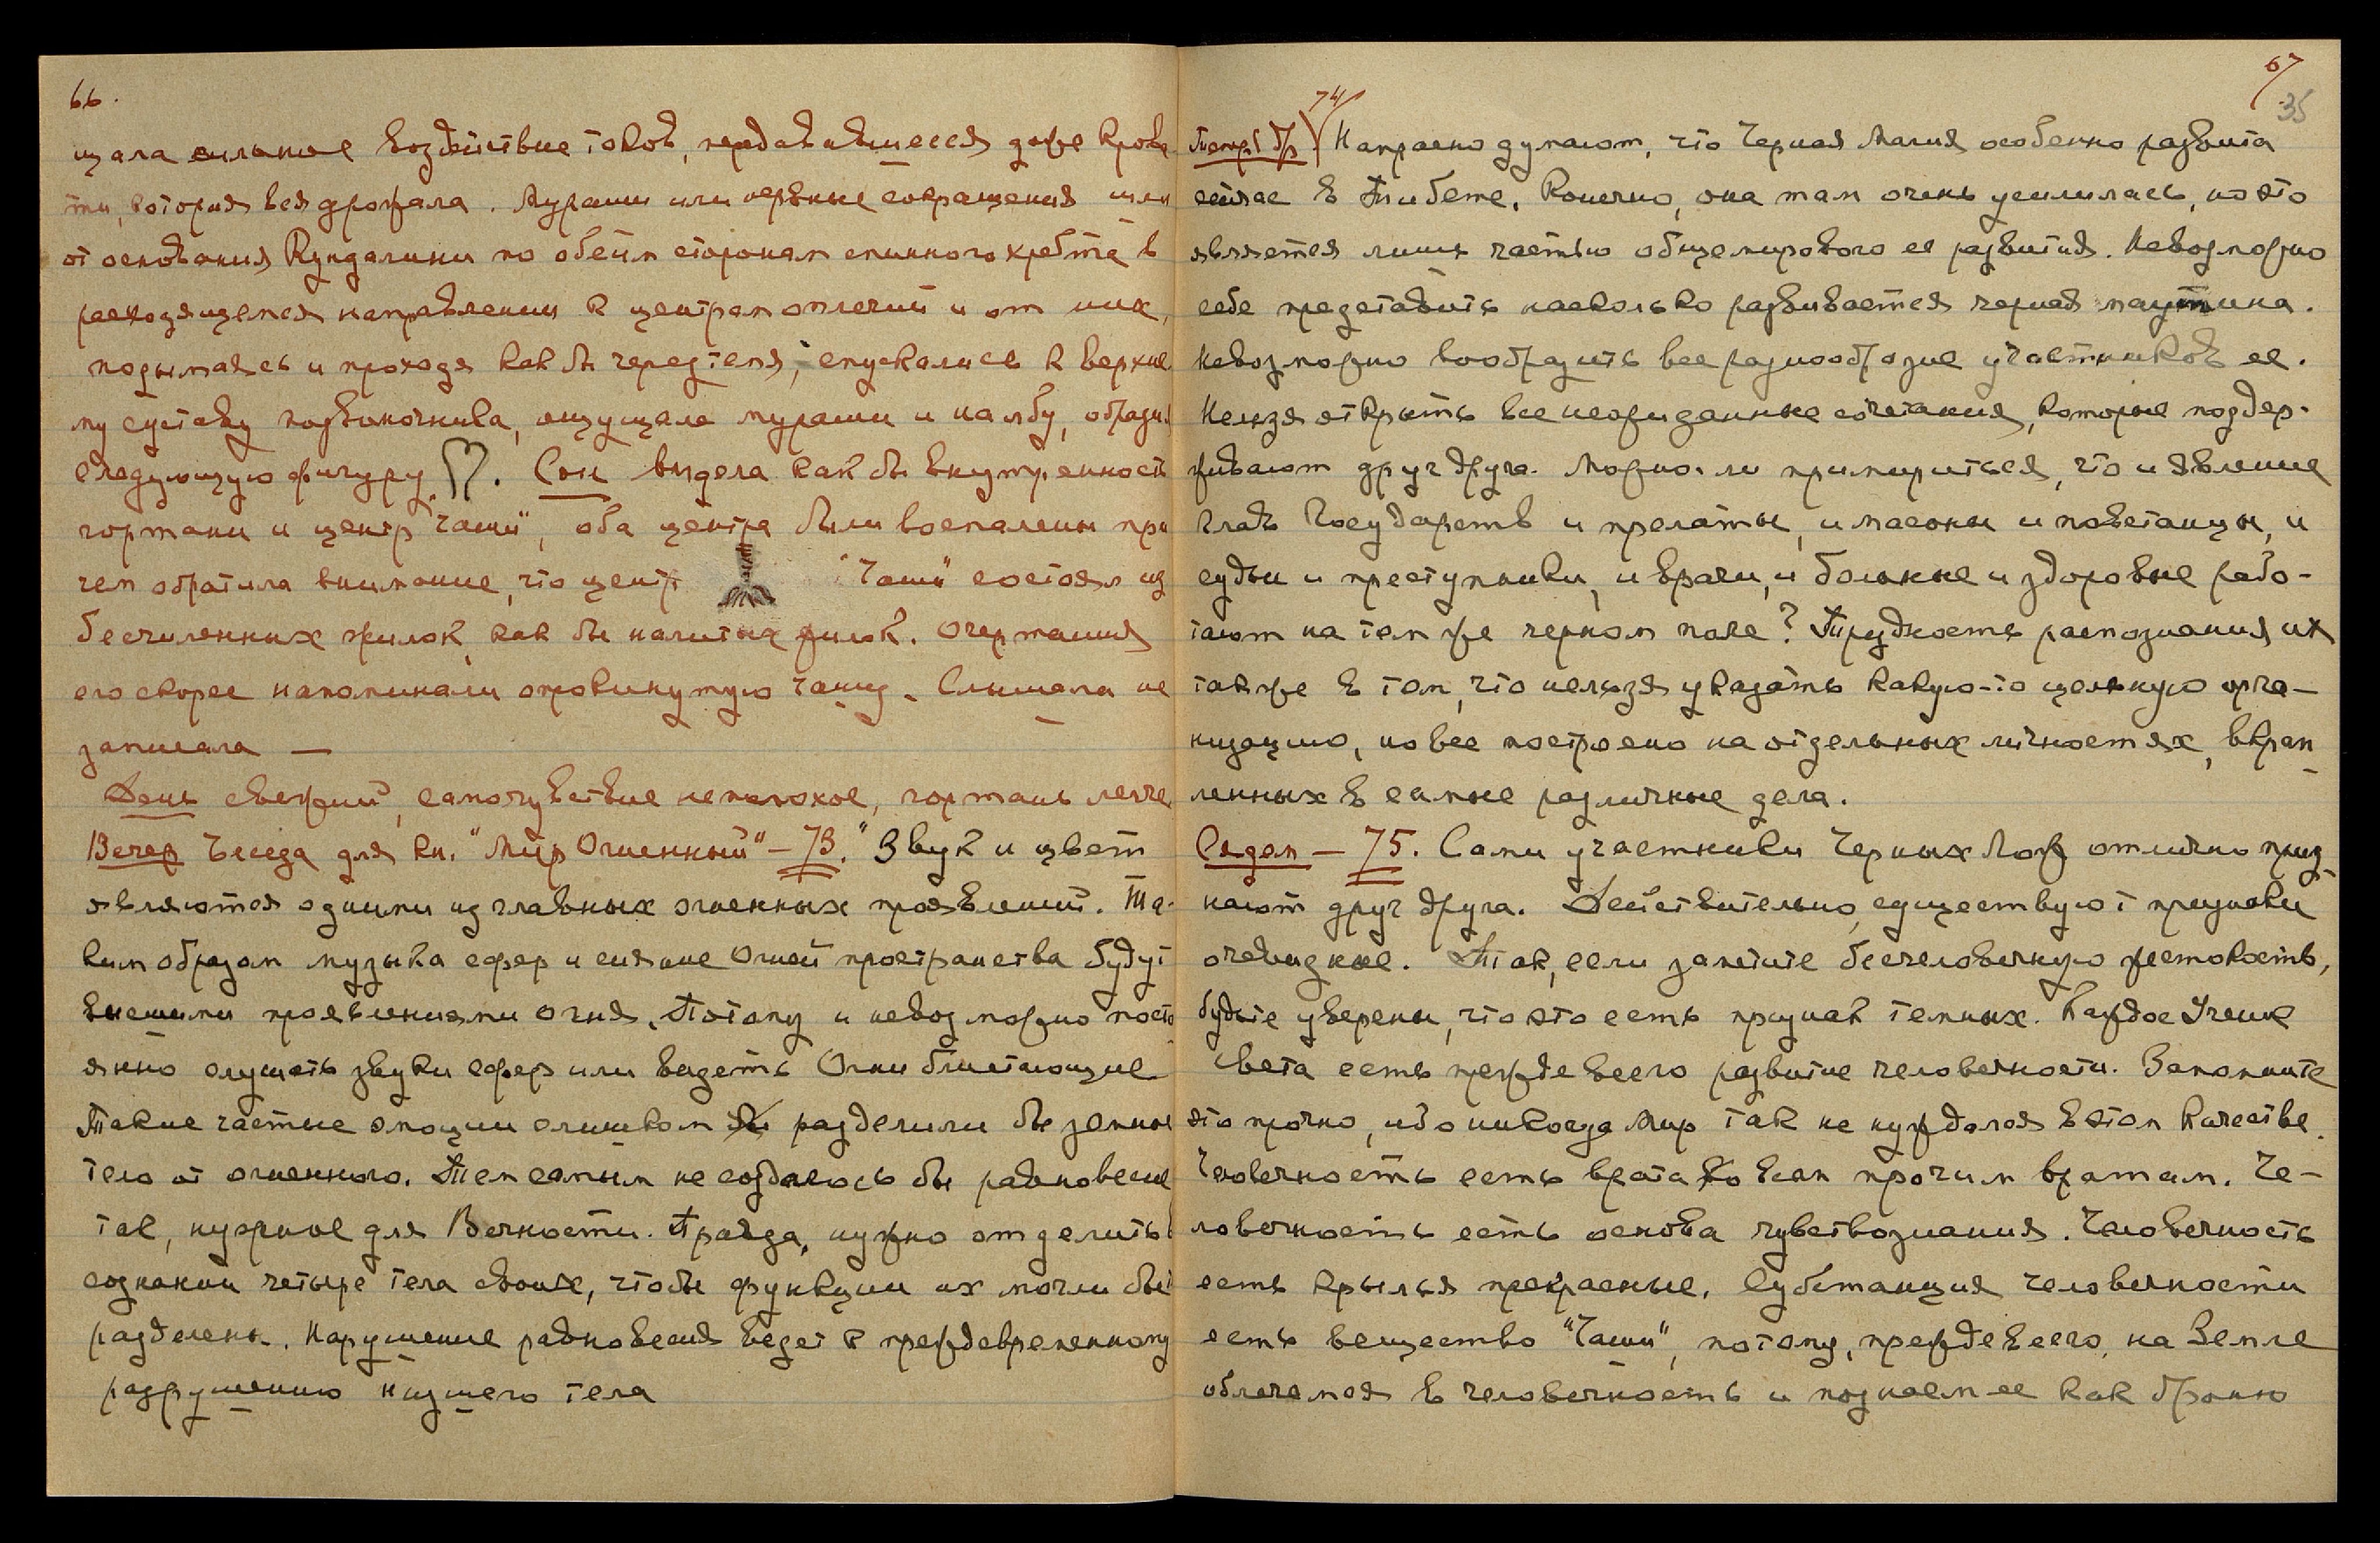 66.
щала сильное воздействие токов, передававшееся даже крова
ти, которая вся дрожала. Мураши или нервные сокращения шли
от основания Кундалини по обеим сторонам спинного хребта в
расходящемся направлении к центрам оплечий и от них,
подымаясь и проходя как бы через темя, спускались к верхне
му суставу позвоночника, ощущала мураши и на лбу, образ.
следующую фигуру. Сон видела как бы внутренность
гортани и центр "Чаши", оба центра были воспалены при
чем обратила внимание, что центр "Чаши" состоял из
бесчисленных жилок, как бы налитых жилок. Очертания
его скорее напоминали опрокинутую чашу. Слышала не
записала —
День свежий, самочувствие неплохое, гортань легче
Вечер Беседа для кн. "Мир Огненный" – 73. "Звук и цвет
являются одними из главных огненных проявлений. Та-
ким образом музыка сфер и сияние Огней пространства будут
высшими проявлениями огня. Потому и невозможно посто
янно слушать звуки сфер или видеть Огни блистающие
Такие частые эмоции слишком разделили бы земное
тело от огненного. Тем самым не создалось бы равновесие
тел, нужное для Вечности. Правда, нужно отделить в
сознании четыре тела своих, чтобы функции их могли быть
разделены. Нарушение равновесия ведет к преждевременному
разрушению низшего тела
67
35
74/
Напрасно думают, что Черная Магия особенно развита
сейчас в Тибете. Конечно, она там очень усилилась, но это
является лишь частью общемирового ее развития. Невозможно
себе представить насколько развивается черная паутина.
Невозможно вообразить все разнообразие участников ее.
Нельзя открыть все неожиданные сочетания, которые поддер-
живают друг друга. Можно-ли примириться, что и явление
Глав Государств и прелаты, и масоны и повстанцы, и
судьи и преступники, и врачи, и больные и здоровые рабо-
тают на том же черном поле? Трудность распознания их
также в том, что нельзя указать какую-то цельную орга-
низацию, но все построено на отдельных личностях, вкрап
ленных в самые различные дела.
Седам – 75. Сами участники Черных Лож отлично приз
нают друг друга. Действительно, существуют признаки
очевидные. Так, если заметите бесчеловечную жестокость,
будьте уверены, что это есть признак темных. Каждое Учение
Света есть прежде всего развитие человечности. Запомните
это прочно, ибо никогда Мир так не нуждался в этом качестве.
Человечность есть врата ко всем прочим вратам. Че-
ловечность есть основа чувствознания. Человечность
есть крылья прекрасные. Субстанция человечности
есть вещество "Чаши", потому, прежде всего, на Земле
облечемся в человечность и познаем ее как броню